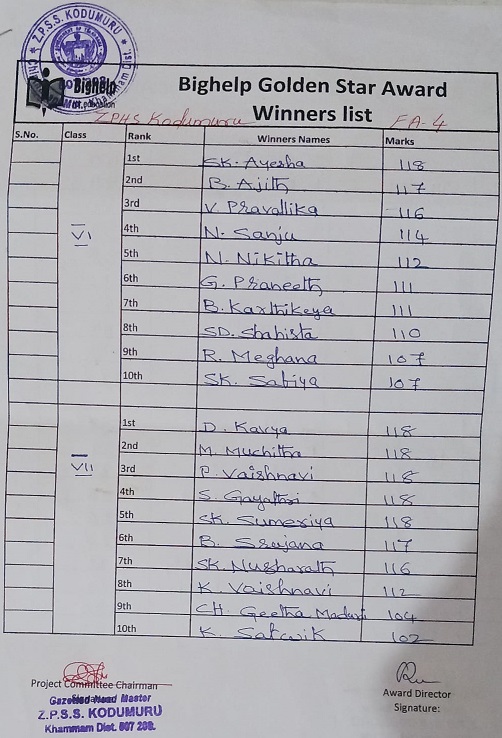 Z.P.S.S. KODUMURU
Bighelp
Bighelp Golden Star Award
Winners list
ZPHS Kodumuru FA-4
S.No. Class Rank Winners Names Marks
1st SK. Ayesha 118
2nd B. Ajith 117
3rd V. Pravallika 116
VI 4th N. Sanju 114
5th N. Nikitha 112
6th G. Praneeth 111
7th B. Karthikeya 111
8th SD. Shahista 110
9th R. Meghana 107
10th SK. Sabiya 107
1st D. Kavya 118
2nd M. Muchitha 118
VII 3rd P. Vaishnavi 118
4th S. Gayathri 118
5th SK. Sumeriya 118
6th B. Srujana 117
7th SK. Nusharath 116
8th K. Vaishnavi 112
9th CH. Geetha Madhuri 104
10th K. Satwik 102
Project Committee Chairman
Award Director
Signature:
Gazetted Head Master
Z.P.S.S. KODUMURU
Khammam Dist. 507 208.